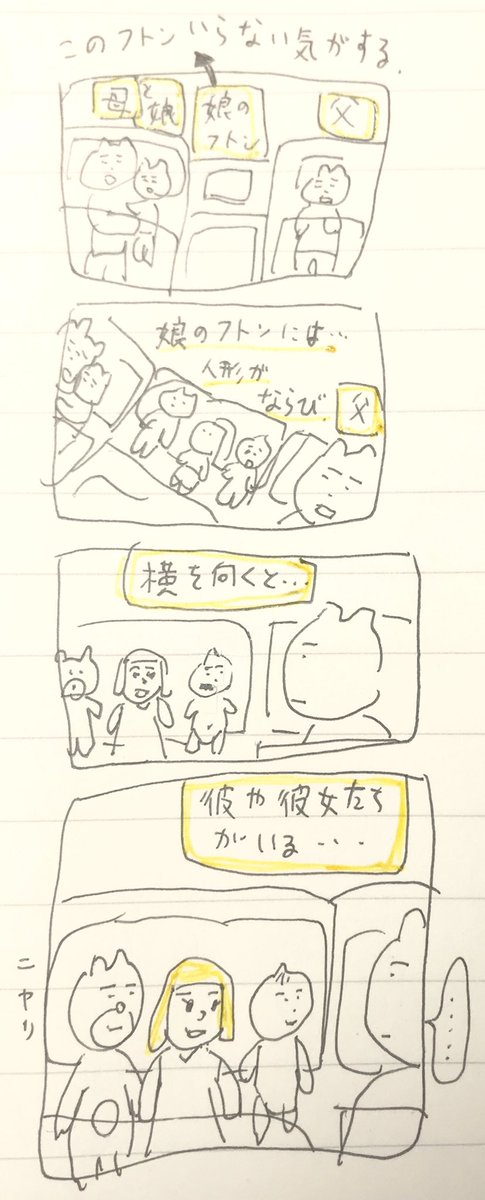 このフトンいらない気がする.
母と娘
娘の
フトン
父
娘のフトンには…
人形が
ならび
父
横を向くと…
彼や彼女たち
がいる・・・
ニヤリ
・・・・・